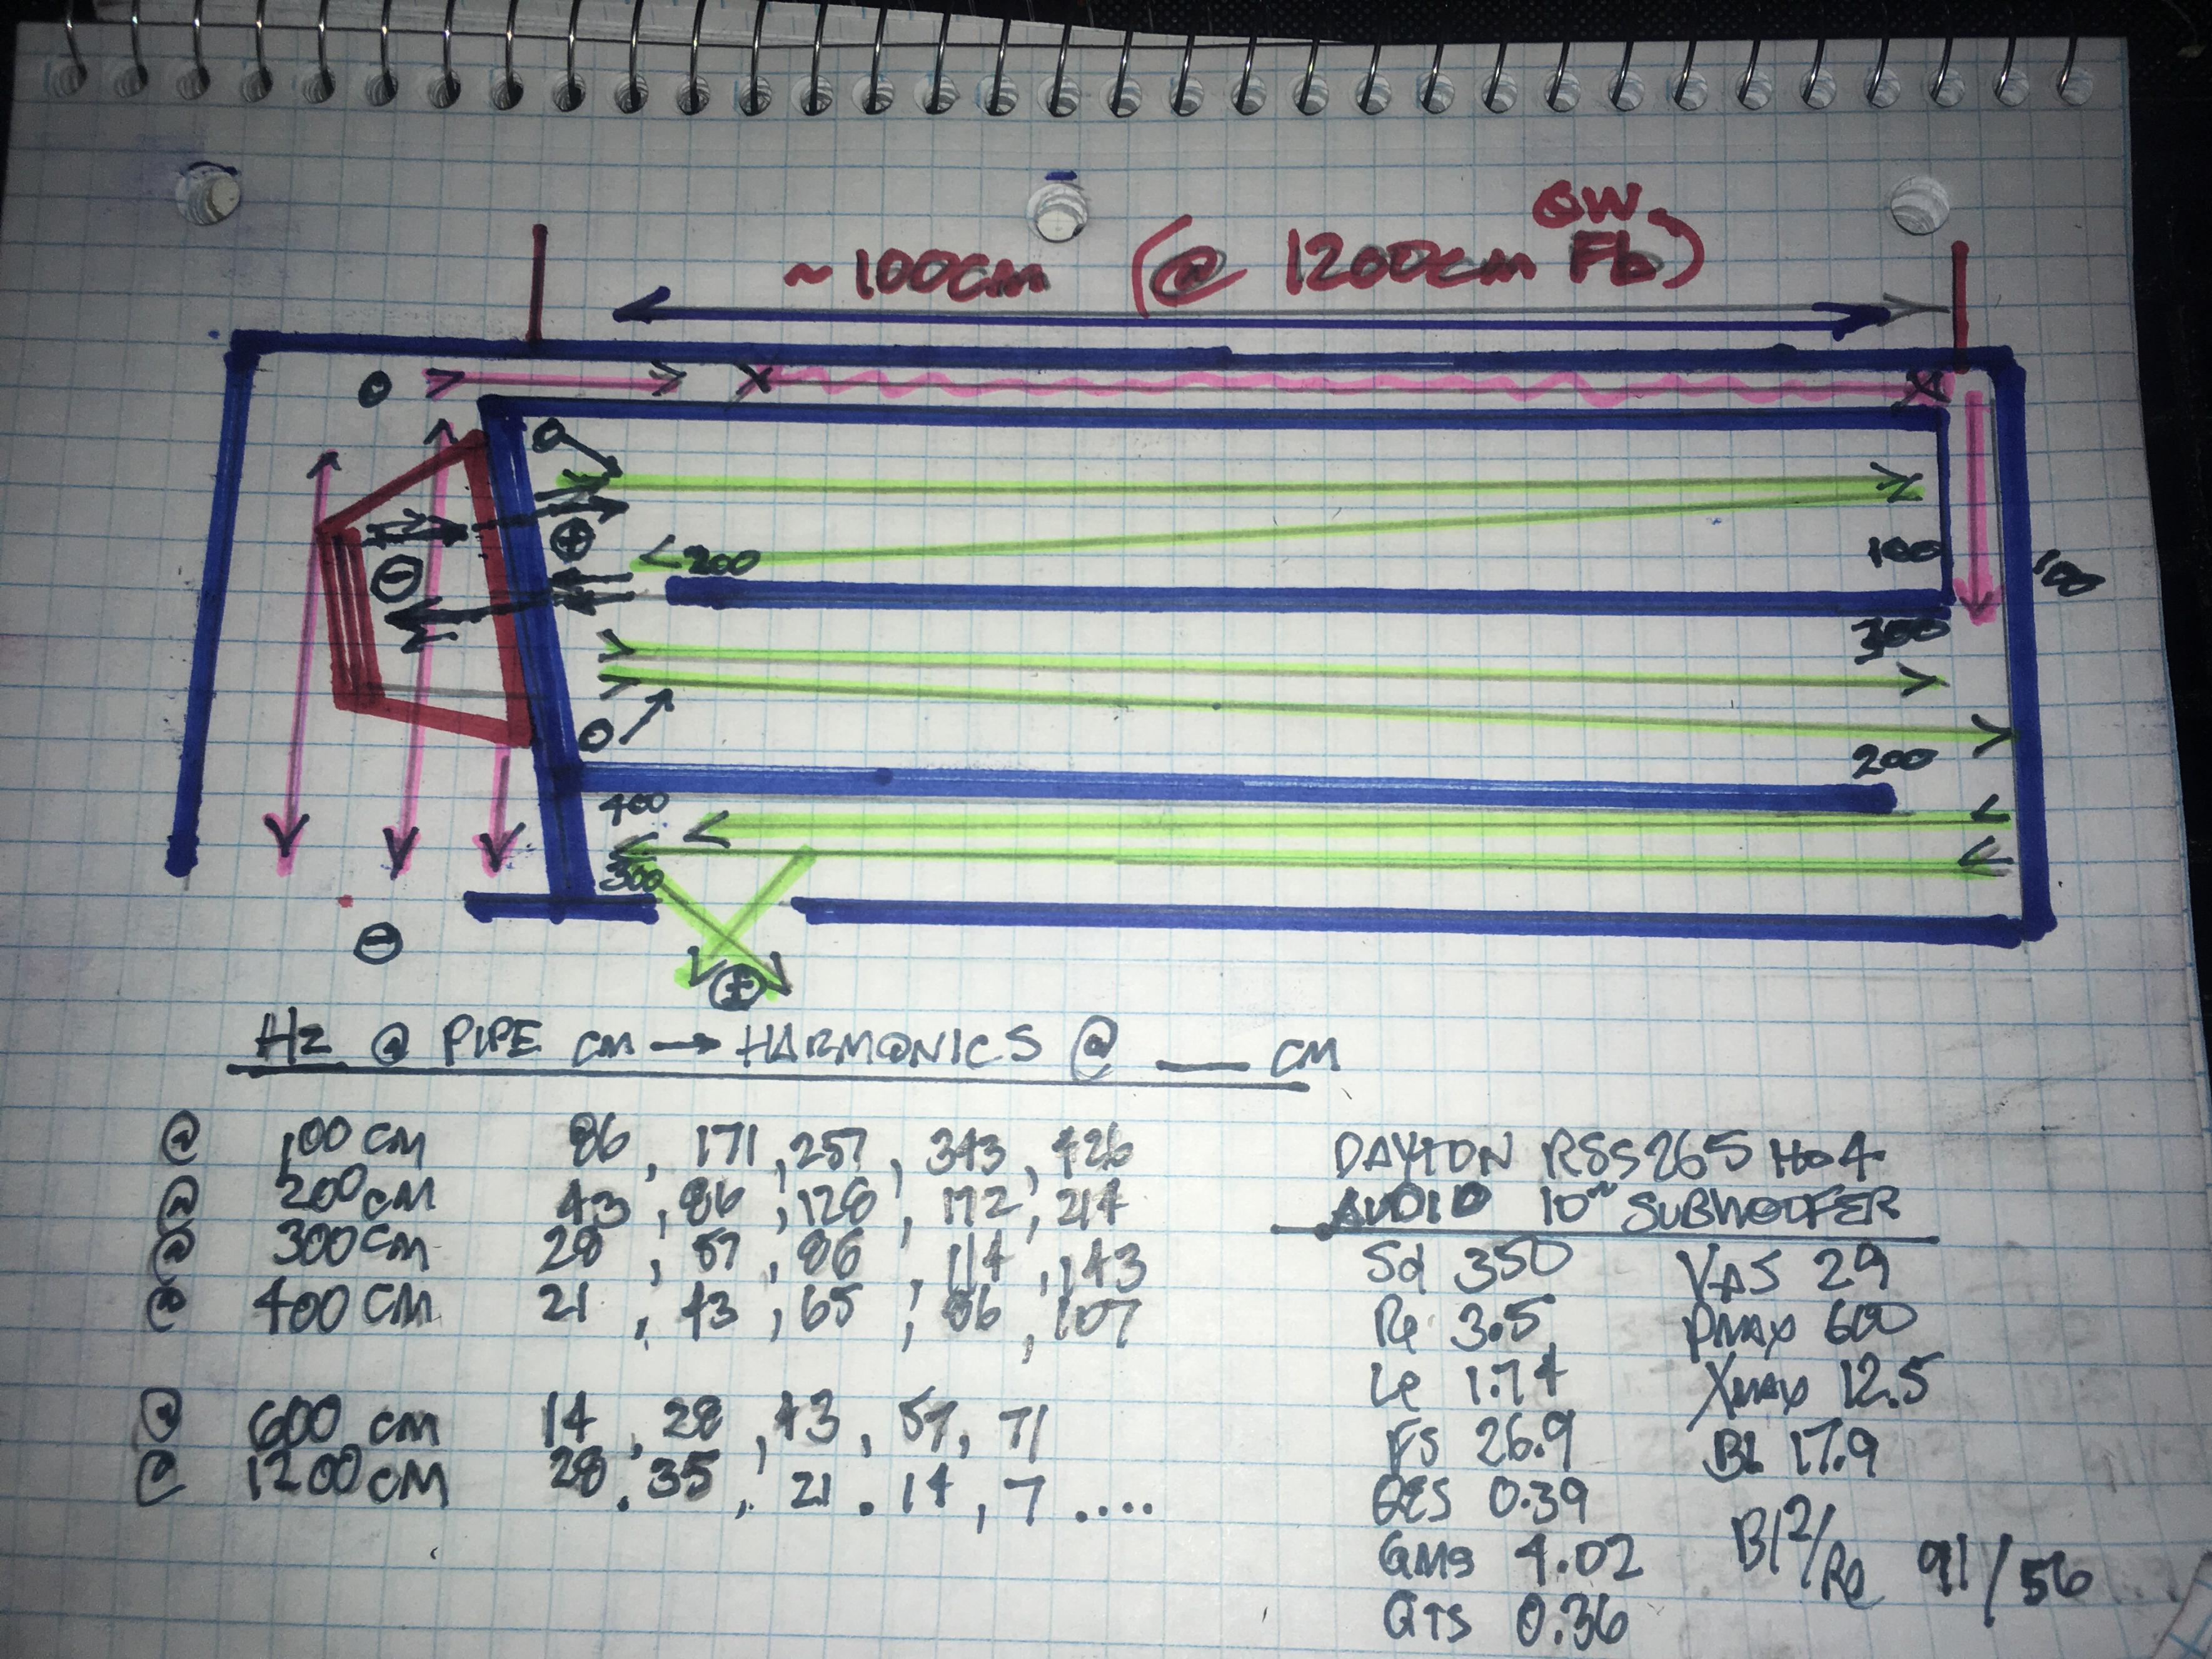 QW
~100cm (@ 1200cm Fb)
⊖
0
⊕
⊖
<200
100
100
300
0
200
400
300
⊖
⊕
Hz @ PIPE cm → HARMONICS @ ___ CM
@ 100 CM 86, 171, 257, 343, 426
@ 200 CM 43, 86, 128, 172, 214
@ 300 CM 28, 57, 86, 114, 143
@ 400 CM 21, 43, 65, 86, 107
@ 600 CM 14, 28, 43, 57, 71
@ 1200 CM 28. 35, 21. 14, 7 ....
DAYTON RSS265 HO 4
AUDIO 10" SUBWOOFER
Sd 350 VAS 29
Re 3.5 PMAX 600
Le 1.74 XMAX 12.5
FS 26.9 BL 17.9
QES 0.39
QMS 4.02 Bl²/Re 91/56
QTS 0.36